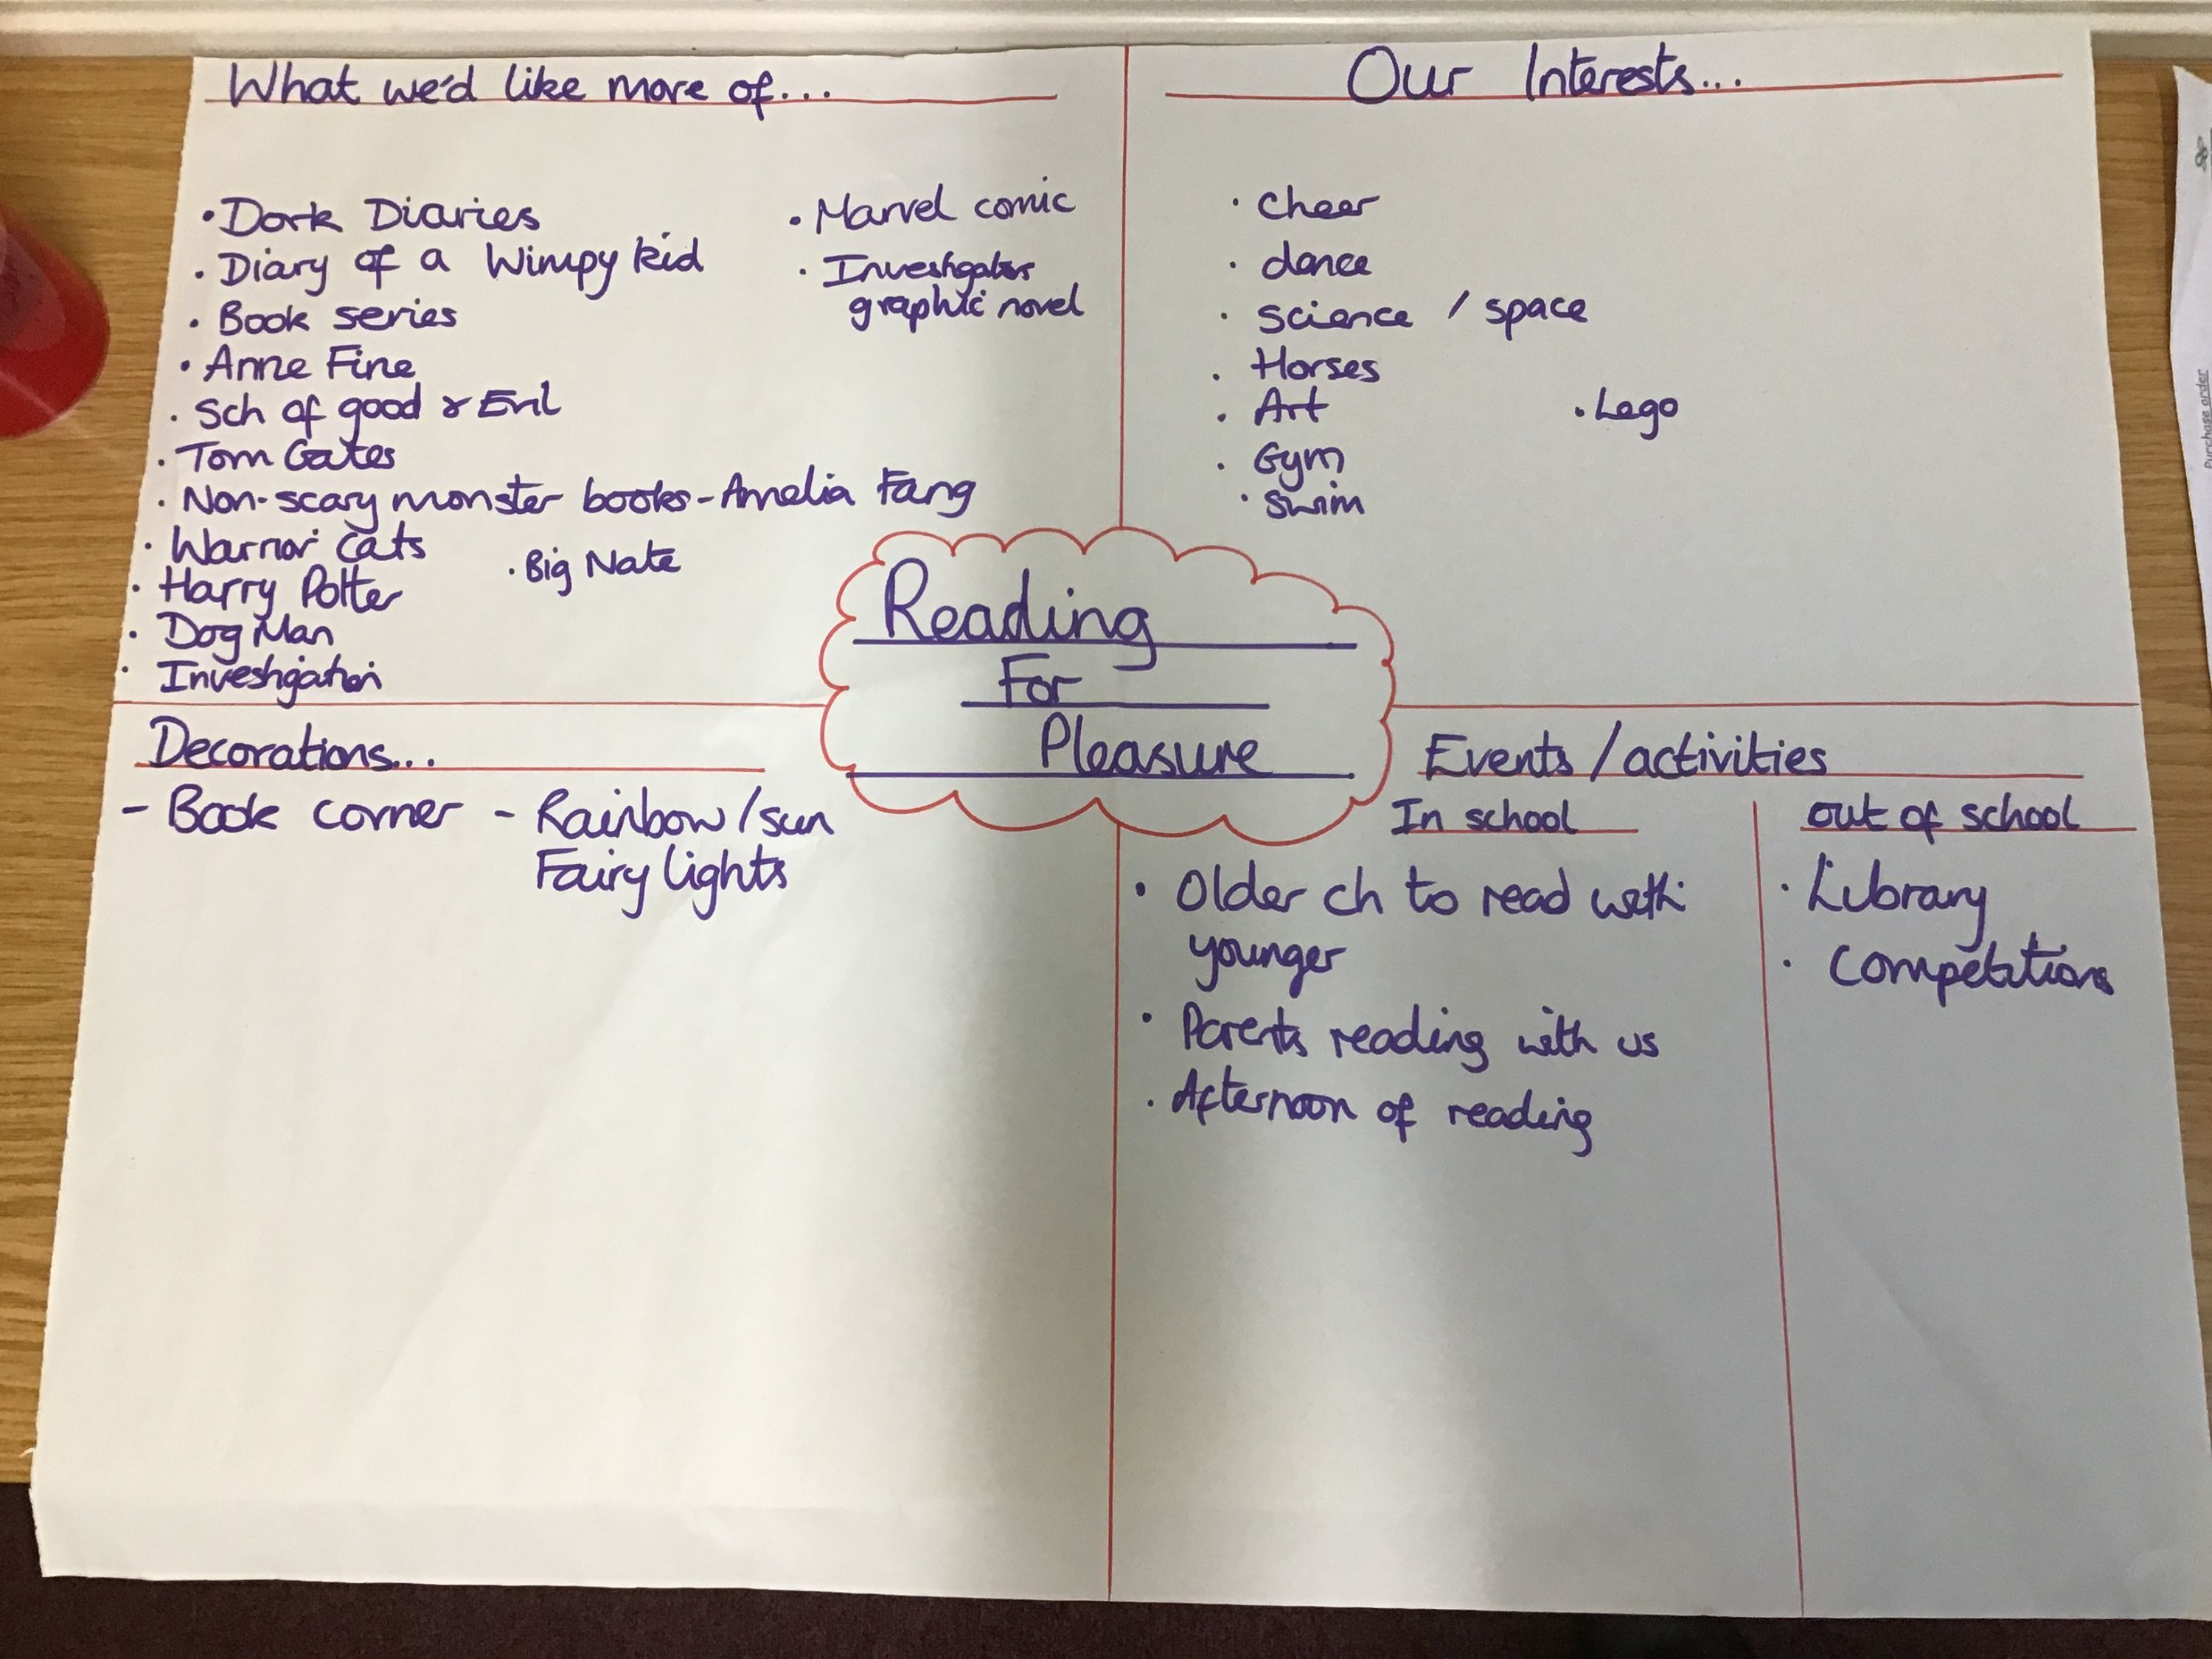 What we'd like more of...
• Dork Diaries
• Diary of a Wimpy kid
• Book series
• Anne Fine
• Sch of good & Evil
• Tom Gates
• Non-scary monster books - Amelia Fang
• Warrior cats
• Big Nate
• Harry Potter
• Dog Man
• Investigation
• Marvel comic
• Investigators
graphic novel
Our Interests...
• cheer
• dance
• science / space
• Horses
• Art
• Lego
• Gym
• swim
Reading
For
Pleasure
Decorations...
- Book corner
- Rainbow/sun
Fairy lights
Events/activities
In school
• Older ch to read with
younger
• Parents reading with us
• Afternoon of reading
out of school
• Library
• Competitions
Purchase order